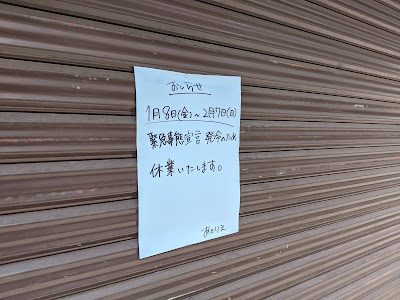 おしらせ
1月8日(金)~2月7日(日)
緊急事態宣言 発令のため
休業いたします。
あとりえ